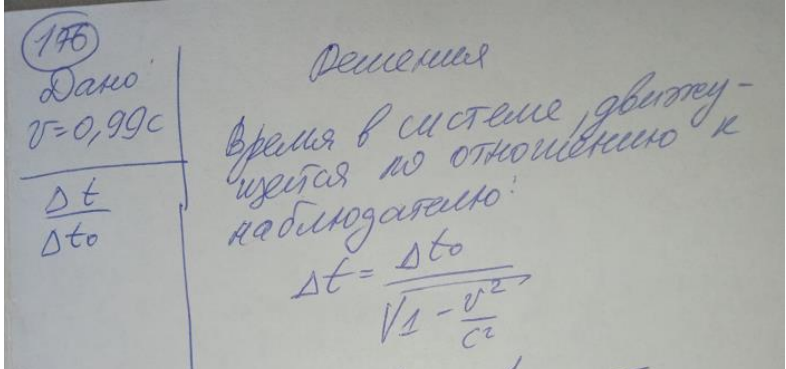 176
Дано
v=0,99c
Δt
Δt₀
Решения
Время в системе, движу-
щейся по отношению к
наблюдателю:
Δt = Δt₀ / √(1 - v²/c²)